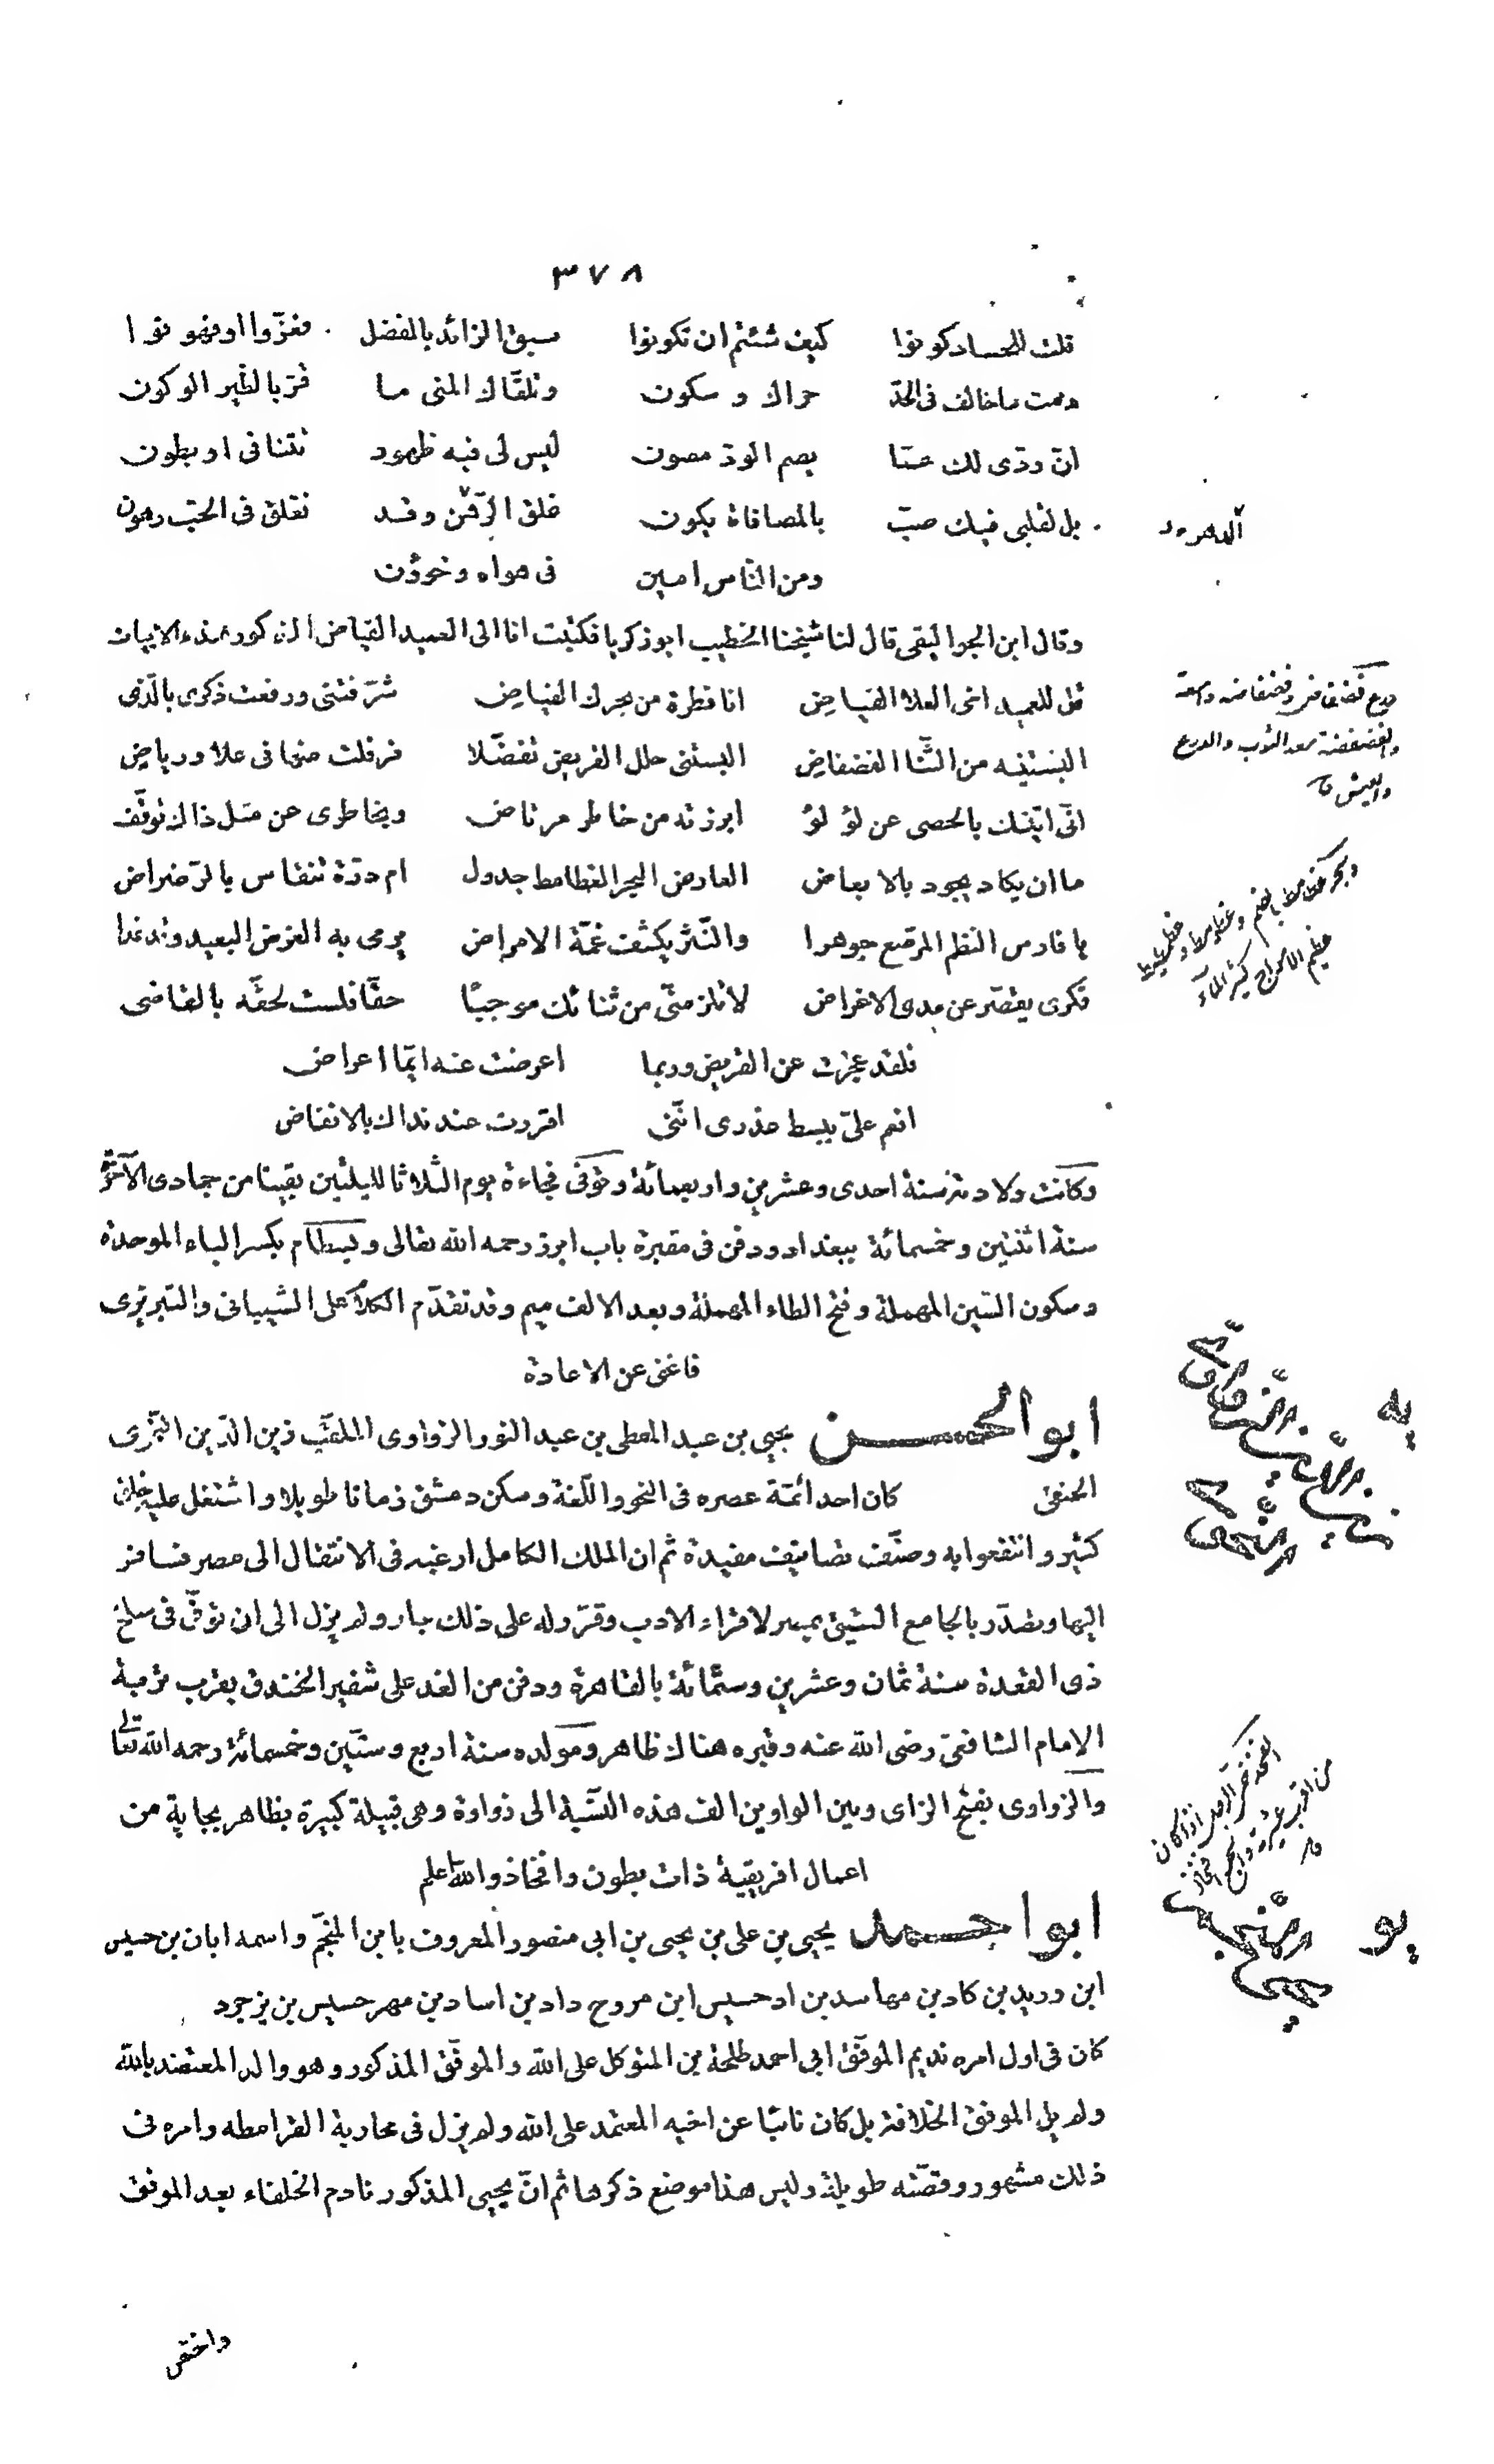 ٣٧٨
قلت للحساد كونوا كيف شئتم ان تكونوا سبق الزائد بالفضل فعزّوا او فهونوا
دمت ما خالف فى الحدّ حراك و سكون وتلقّاك المنى ما قرّ بالطّير الوكون
انّ ودّى لك عمّا يصم الودّ مصون ليس لى فيه ظهور تتنافى او بطون
بل لقلبى فيك صبّ بالمصافاة يكون غلق الرّهن وقد تغلق فى الحبّ رهون
ومن النّاس امين فى هواه وخوؤن
وقال ابن الجواليقى قال لنا شيخنا الخطيب ابو زكريا فكتبت انا الى العميد الفيّاض المذكور بهذه الابيات
قل للعميد اخى العلا الفياض انا قطرة من بحرك الفياض شرّفتنى ورفعت ذكرى بالّذى
البستنيه من الثّنا الفضفاض البستنى حلل القريض تفضّلا فرفلت منها فى علا ورياض
انّى اتيتك بالحصى عن لؤلؤ ابرزته من خاطر مرتاض وبخاطرى عن مثل ذاك توقّف
ما ان يكاد يجود بالابعاض العارض البحر الغطامط جدول ام درّة تنقاس بالرّضراض
يا فارس النظم المرصّع جوهرا والنّثر يكشف غمّة الامراض يرمى به الغرض البعيد وقد غدا
فكرى يقصّر عن مدى الاغراض لا تلزمنّى من ثنائك موجبًا حقّا فلست لحقّه بالقاضى
فلقد عجزت عن القريض وربما اعرضت عنه ايّما اعراض
انعم علىّ ببسط عذرى انّنى اقررت عند نداك بالانفاض
وكانت ولادته سنة احدى وعشرين واربعمائة وتوفى فجاءة يوم الثلاثا لليلتين بقيتا من جمادى الآخرة
سنة اثنتين وخمسمائة ببغداد ودفن فى مقبرة باب ابرز رحمه الله تعالى وبسطام بكسر الباء الموحدة
وسكون السّين المهملة وفتح الطاء المهملة وبعد الالف ميم وقد تقدّم الكلام على الشيبانى والتبريزى
فاغنى عن الاعادة
ابو الحسن يحيى بن عبد المعطى بن عبد النور الزواوى الملقّب زين الدّين النّحوى
الحنفى كان احد ائمّة عصره فى النحو واللّغة وسكن دمشق زمانا طويلا واشتغل عليه خلق
كثير وانتفعوا به وصنّف تصانيف مفيدة ثم ان الملك الكامل ارغبه فى الانتقال الى مصر فسافر
اليها وتصدّر بالجامع العتيق بمصر لاقراء الادب وقرّر له على ذلك جار ولم يزل الى ان توفّى فى سلخ
ذى القعدة سنة ثمان وعشرين وستّمائة بالقاهرة ودفن من الغد على شفير الخندق بقرب تربة
الامام الشافعىّ رضى الله عنه وقبره هناك ظاهر ومولده سنة اربع وستّين وخمسمائة رحمه الله تعالى
والزواوى بفتح الزاى وبين الواوين الف هذه النسّبة الى زواوة وهى قبيلة كبيرة بظاهر بجاية من
اعمال افريقية ذات بطون وافخاذ والله اعلم
ابو احمد يحيى بن على بن يحيى بن ابى منصور المعروف بابن المنجّم واسمه ابان بن حسيس
ابن وريد بن كاد بن مهاسد بن ادحسيس ابن مروح داد بن اساد بن مهر حسيس بن يزجرد
كان فى اول امره نديم الموفّق ابى احمد طلحة بن المتوكل على الله والموفّق المذكور وهو والد المعتضد بالله
ولم يل الموفق الخلافة بل كان نائبًا عن اخيه المعتمد على الله ولم يزل فى محاربة القرامطه وامره فى
ذلك مشهور وقصّته طويلة وليس هذا موضع ذكرها ثم انّ يحيى المذكور نادم الخلفاء بعد الموفق
واختصّ
درع فضفاض وفضفاضه واسعة
والفضفضة سعة الثوب والدرع
والعيش
وبحر غطامط بالضم
عظيم الامواج كثير الماء
يه
يو